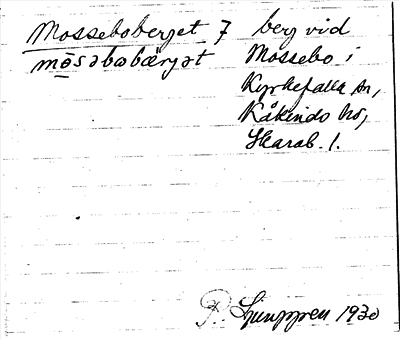 Mosseboberget 7 berg vid
mōsəbobärjət Mossebo i
Kyrkefalla sn,
Kåkinds hd,
Skarab. l.
P. Ljunggren 1930